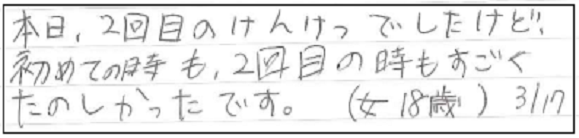 本日、2回目のけんけつでしたけど、
初めての時も、2回目の時もすごく
たのしかったです。(女 18歳) 3/17